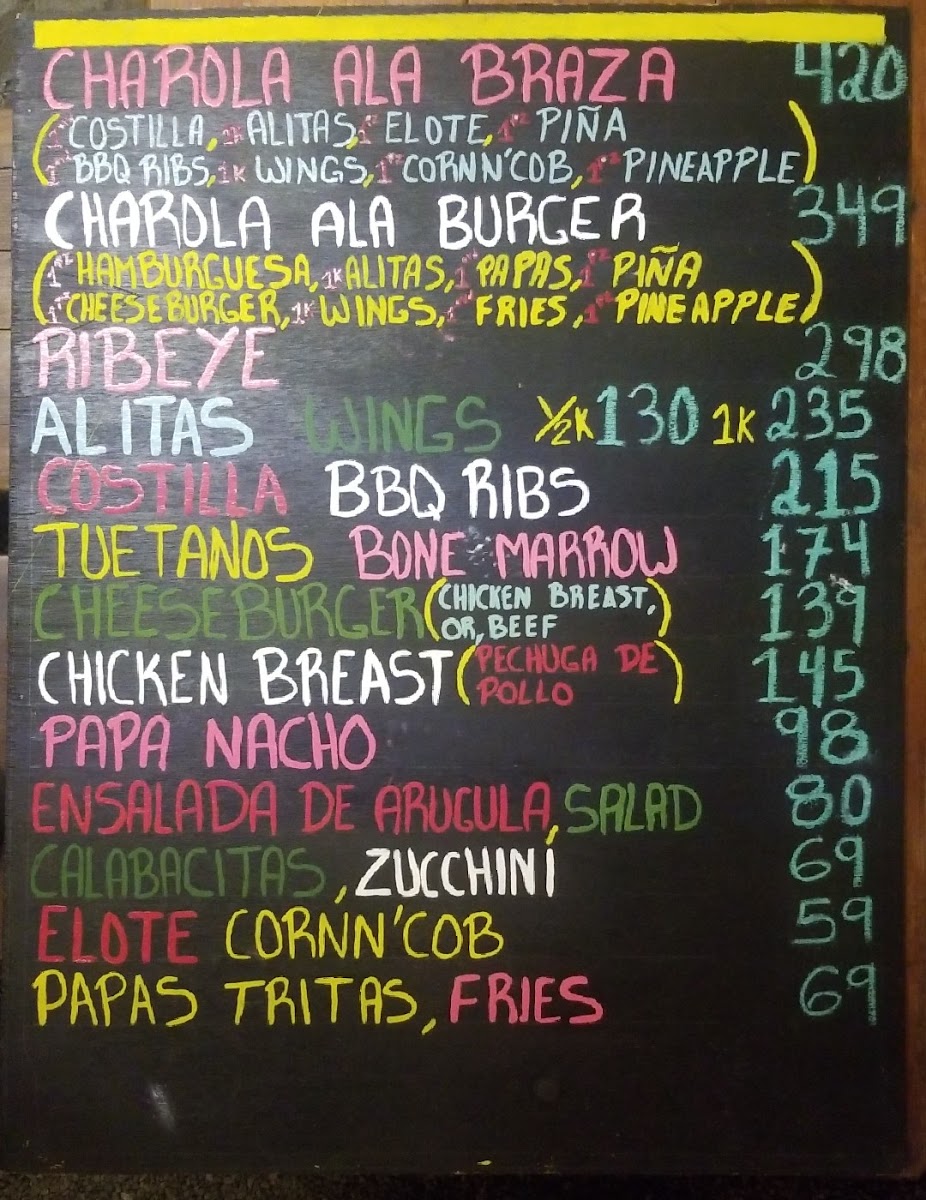 CHAROLA ALA BRAZA 420
(1ʳᶻ COSTILLA, 1K ALITAS, 1ʳᶻ ELOTE, 1ʳᶻ PIÑA
1ʳᶻ BBQ RIBS, 1K WINGS, 1ʳᶻ CORNN'COB, 1ʳᶻ PINEAPPLE)
CHAROLA ALA BURGER 349
(1ʳᶻ HAMBURGUESA, 1K ALITAS, 1ʳᶻ PAPAS, 1ʳᶻ PIÑA
1ʳᶻ CHEESEBURGER, 1K WINGS, 1ʳᶻ FRIES, 1ʳᶻ PINEAPPLE)
RIBEYE 298
ALITAS WINGS ½K 130 1K 235
COSTILLA BBQ RIBS 215
TUETANOS BONE MARROW 174
CHEESEBURGER (CHICKEN BREAST, 139
OR, BEEF)
CHICKEN BREAST (PECHUGA DE 145
POLLO)
PAPA NACHO 98
ENSALADA DE ARUGULA, SALAD 80
CALABACITAS, ZUCCHINÍ 69
ELOTE CORNN'COB 59
PAPAS TRITAS, FRIES 69